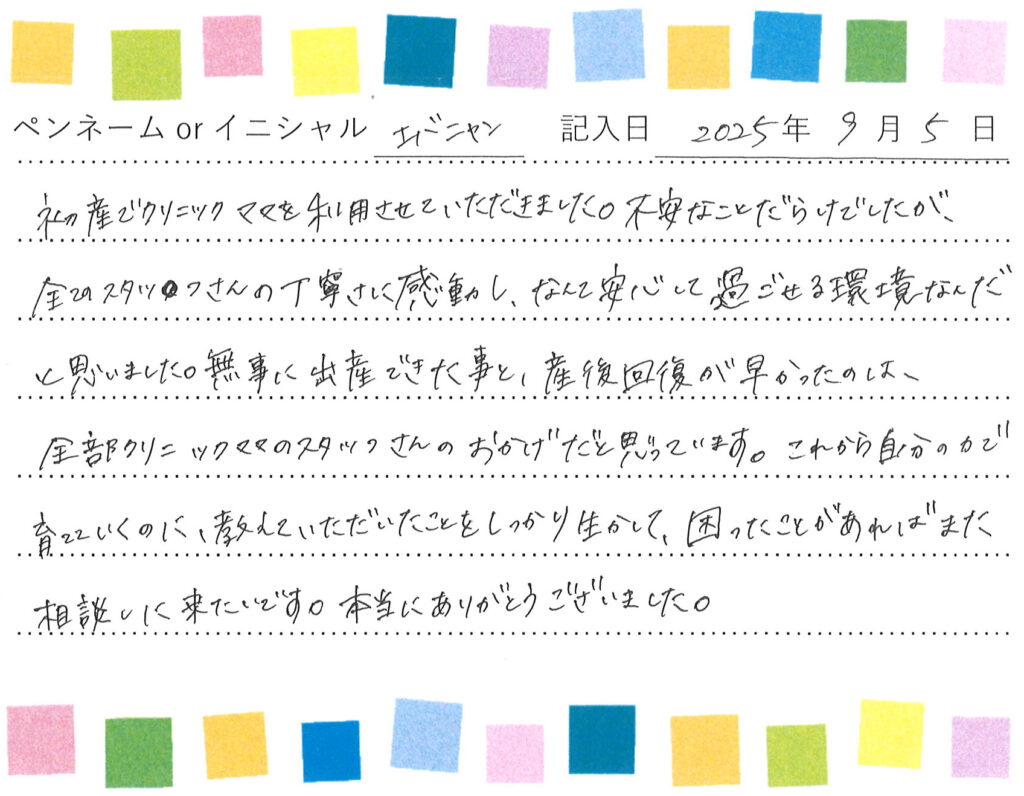 ペンネーム or イニシャル エバニャン 記入日 2025年 9月 5日
初産でクリニックママを利用させていただきました。不安なことだらけでしたが、
全てのスタッフさんの丁寧さに感動し、なんて安心して過ごせる環境なんだ
と思いました。無事に出産できた事と、産後回復が早かったのは、
全部クリニックママのスタッフさんのおかげだと思っています。これから自分の力で
育てていくのに、教えていただいたことをしっかり生かして、困ったことがあればまた
相談しに来たいです。本当にありがとうございました。